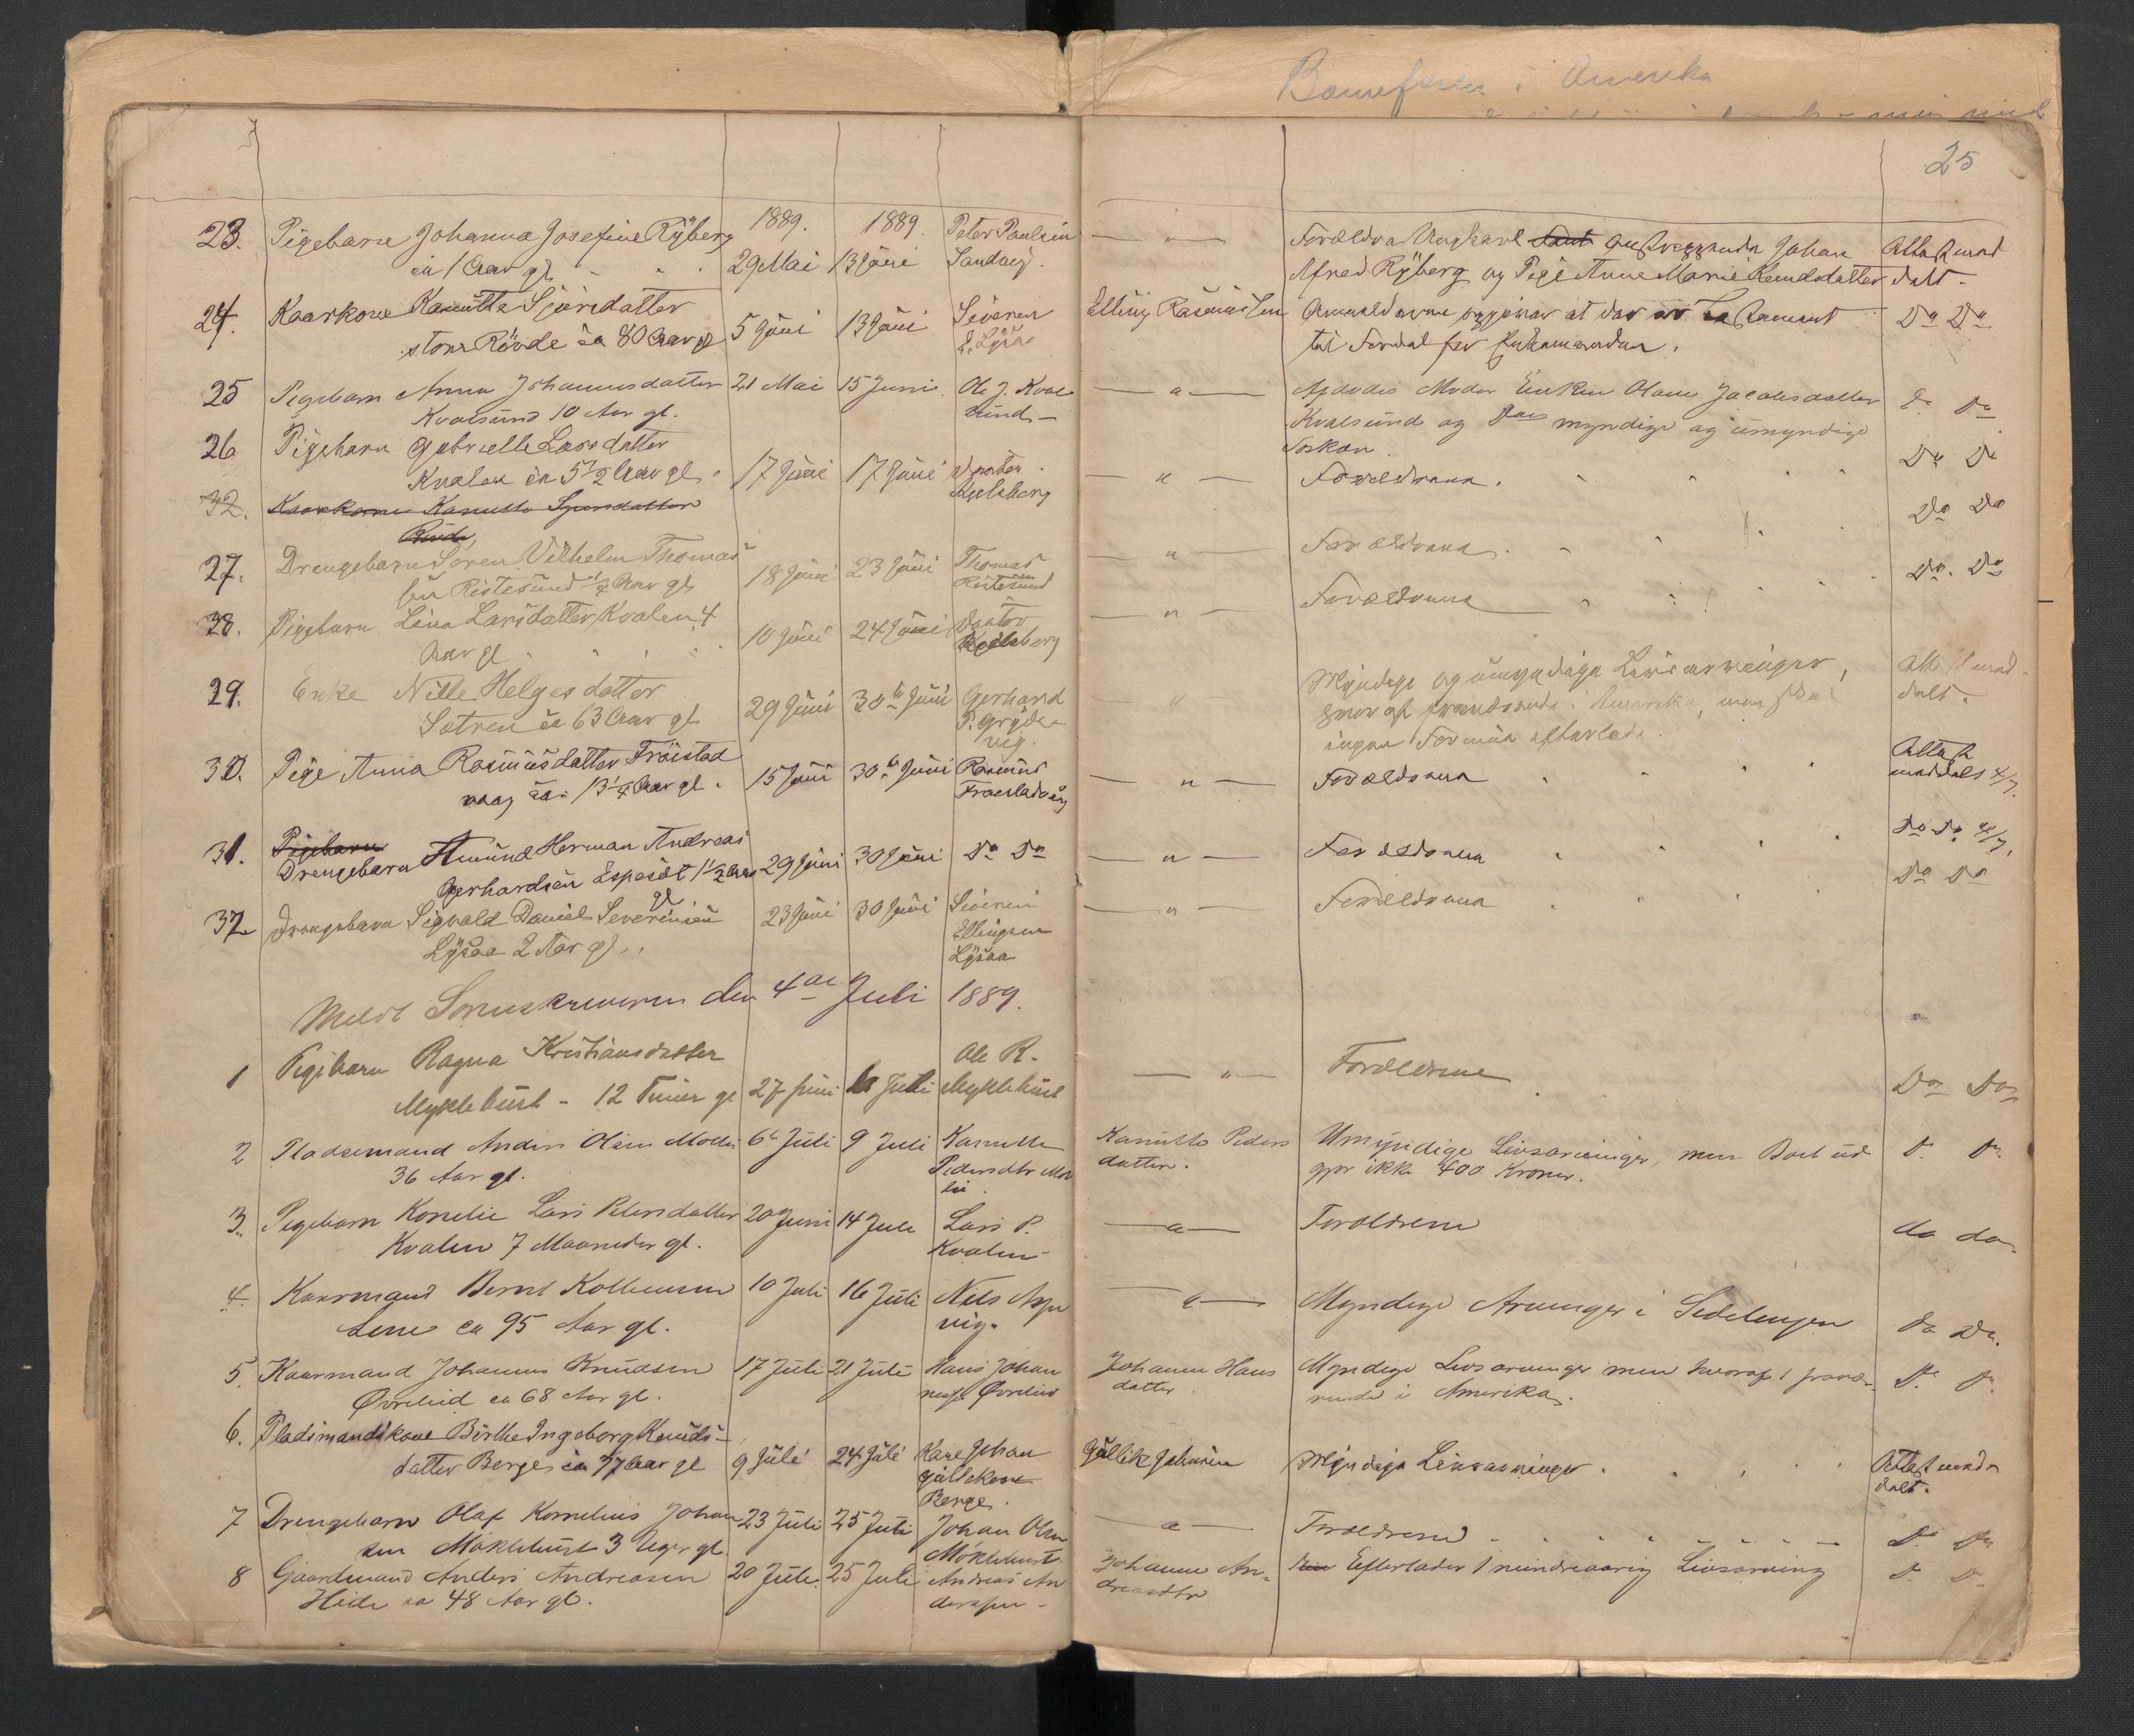 Barnefaren i Amerika
25
23. Pigebarn Johanna Josefine Rÿberg 1889. 1889. Peter Paulsen — " — Forældre Ungkarl Johan Attest med
ca 1 Aar gl. 29 Mai 13 Juni Sandvig. Alfred Rÿberg og Pige Anne Marie Knudsdatter delt.
24. Kaarkone Kanutte Sjursdatter 5 Juni 13 Juni Severen Elling Rasmussen Anmelderne opgiver at der er Testament Do Do
store Røvde ca 80 Aar gl E. Lÿsaa til Fordel for
25 Pigebarn Anna Johannesdatter 21 Mai 15 Juni Ole J. Kval — " — Afdødes Moder Enken Olave Jacobsdatter Do Do
Kvalsund 10 Aar gl. sund — Kvalsund og myndige og umyndige
Søsken.
26 Pigebarn Gabrielle Larsdatter
Kvalen ca 5 1/2 Aar gl. 17 Juni 17 Juni Kjelsberg — " — Forældrene. Do Do
32. Kaarkone Kanutte Sjursdatter
Røvde
27. Drengebarn Søren Vilhelm Thomas 18 Juni 23 Juni Thomas — " — Forældrene. Do Do
sen Ristesund 1/4 Aar gl. Ristesund
28. Pigebarn Lina Larsdatter Kvalen 4 10 Juni 24 Juni Kjelsberg — " — Forældrene Do. Do
Aar gl.
29. Enke Nille Helgesdatter 29 Juni 30te Juni Gerhard " Myndige og umyndige Livsarvinger, Attest med
Sætren ca 63 Aar gl P. Grÿde hvoraf fraværende i Amerika, men skal delt.
vig. ingen Formue efterlade.
30. Pige Anna Rasmusdatter Frøistad 15 Juni 30te Juni Rasmus — " — Forældrene Attest
vaag ca 13 1/4 Aar gl. Frøistadvåg meddelt 4/7.
31. Pigebarn
Drengebarn Amund Herman Andreas 29 Juni 30 Juni Do Do — " — Forældrene Do Do 4/7.
Gerhardsen Espesæt 1 1/2 Aar
gl
32 Drengebarn Sigvald Daniel Severinsen 23 Juni 30 Juni Severin — " — Forældrene Do Do
Lÿsaa 2 Aar gl. Ellingsen
Lÿsaa
Meldt Sorenskriveren den 4de Juli 1889.
1 Pigebarn Ragna Kristiansdatter Ole R.
Myklebust - 12 Timer gl 27 Juni Juli Myklebust — " — Forældrene Do Do
2 Pladsemand Anders Olsen Moldi 6te Juli 9 Juli Kanutte Kanutte Peders Umyndige Livsarvinger, men Boet ud Do Do
36 Aar gl. Pedersdtr Mol datter. gjør ikke 400 Kroner.
3. Pigebarn Konelie Lars Petersdatter 20 Juni 14 Juli Lars P. — " — Forældrene do do
Kvalen 7 Maaneder gl. Kvalen
4. Kaarmand Bernt Kolbensen 10 Juli 16 Juli Nels Asp — " — Myndige Arvinger i Sedelengen do Do.
Lene ca 95 Aar gl. vig.
5. Kaarmand Johannes Knudsen 17 Juli 21 Juli Hans Johan Johanne Hans Myndige Livsarvinger men hvoraf 1 fravæ- Do Do
Øvrelid ca 68 Aar gl. nesen Øvrelid datter rende i Amerika.
6. Pladsmandskone Birthe Ingeborg Knuds-
datter Berge ca 77 Aar gl 9 Juli 24 Juli Karl Johan Gullik Johnsen Myndige Livsarvinger. Attest med
Gulleksen delt.
Berge.
7 Drengebarn Olaf Kornelius Johan 23 Juli 25 Juli Johan Olsen — " — Forældrene Do Do
sen Möklebust 3 Uger gl. Möklebust
8 Gaardmand Anders Andreasen 20 Juli 25 Juli Andreas An Johanne An- Efterlader 1 mindreaarig Livsarving Do Do
Heide ca 48 Aar gl. dersen - dreasdtr